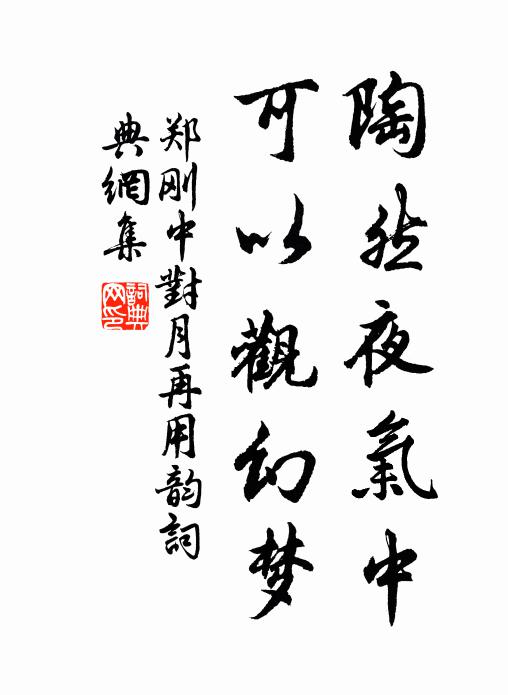 陶然夜氣中
可以觀幻梦
郑刚中對月再用韵詞
典網集
詞典网印